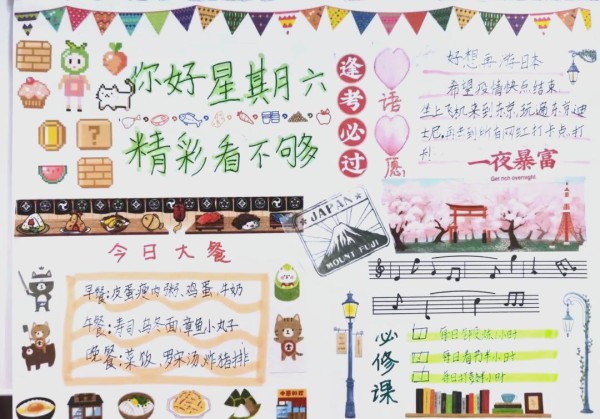 你好星期六
精彩看不够
逢考必过
语
愿
好想再游日本
希望疫情快点结束
坐上飞机来到东京,玩遍东京迪
士尼,再去到所有网红打卡点,打
卡!
一夜暴富
Get rich overnight
JAPAN
MOUNT FUJI
今日大餐
早餐:皮蛋瘦肉粥,鸡蛋,牛奶
午餐:寿司,乌冬面,章鱼小丸子
晚餐:菜饭,罗宋汤炸猪排
必修课
每日 小时
每日看书半小时
每日 小时